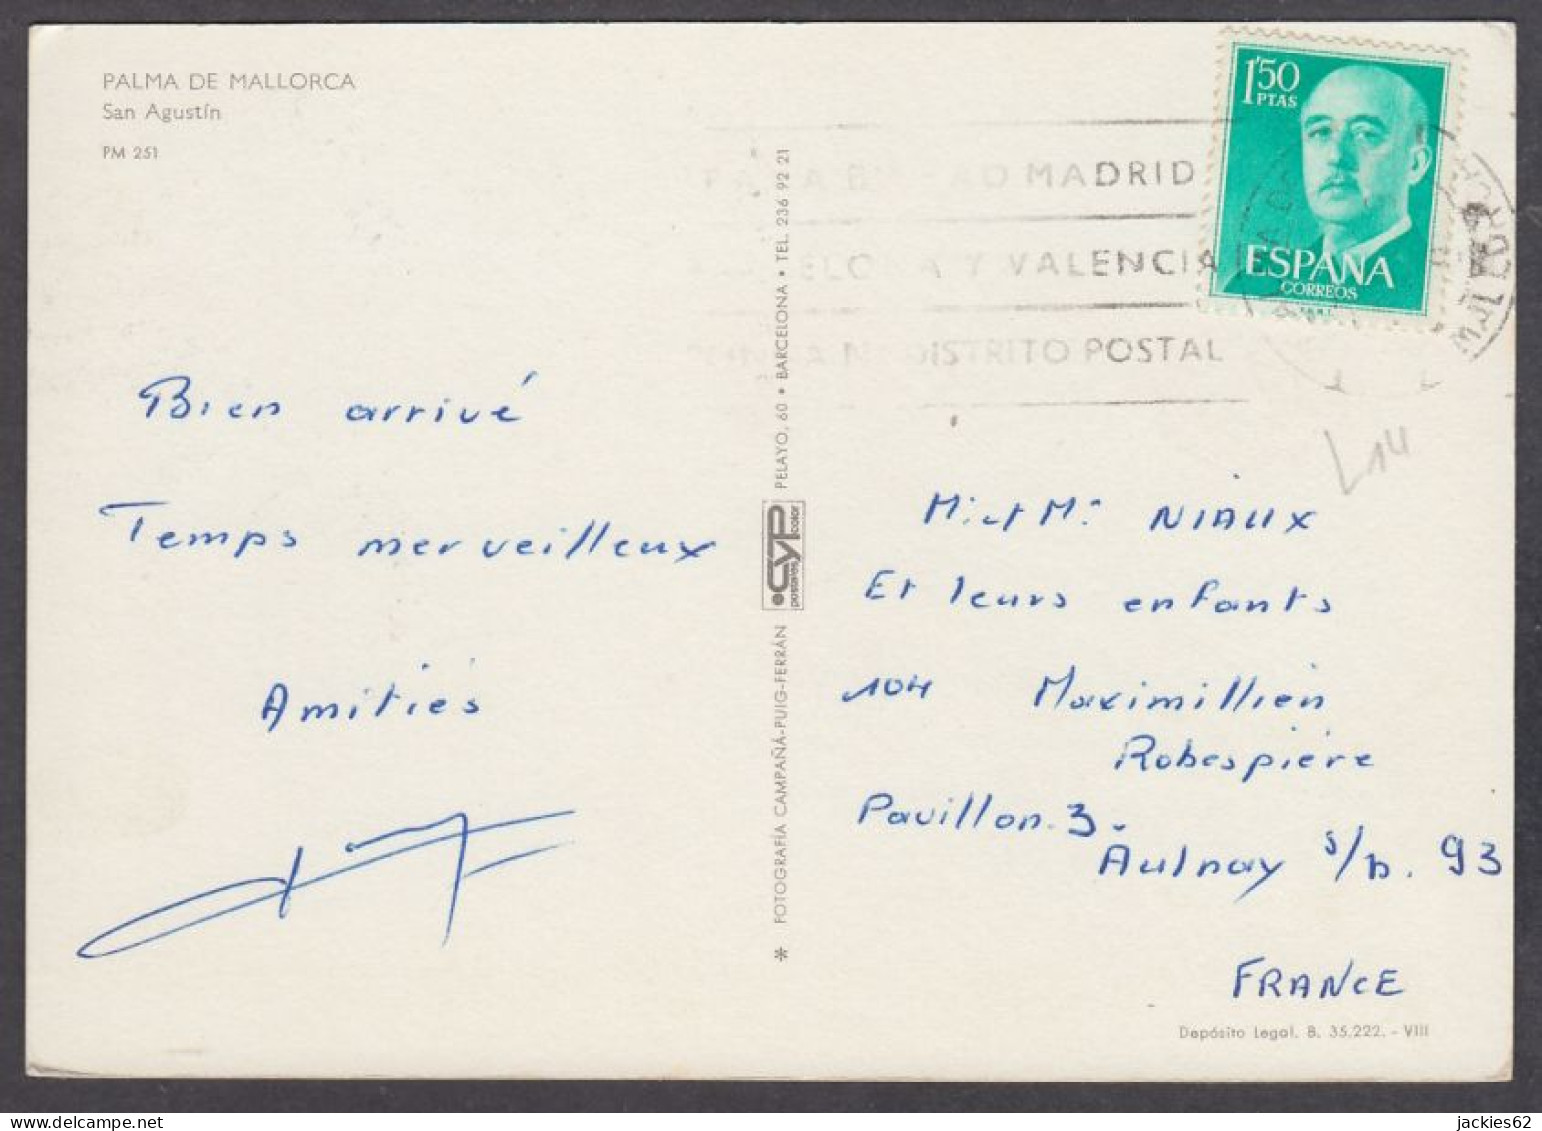 PALMA DE MALLORCA
San Agustín
PM 251
Bien arrivé
Temps merveilleux
Amitiés
* FOTOGRAFÍA CAMPAÑÁ-PUIG-FERRÁN
postales CYP color
PELAYO, 60 • BARCELONA • TEL. 236 92 21
MADRID
Y VALENCIA
DISTRITO POSTAL
1'50
PTAS
ESPAÑA
CORREOS
MALLORCA
L14
Mr et Me NIAUX
Et leurs enfants
104 Maximillien
Robespière
Pavillon 3.
Aulnay s/b. 93
FRANCE
Depósito Legal. B. 35.222. - VIII
jackies62